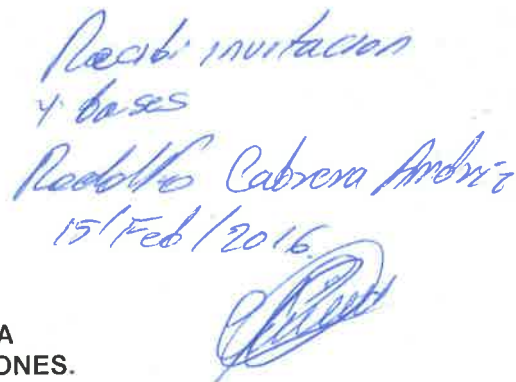 Recibi invitacion
y bases
Rodolfo Cabrera
15/Feb/2016
A
ONES.